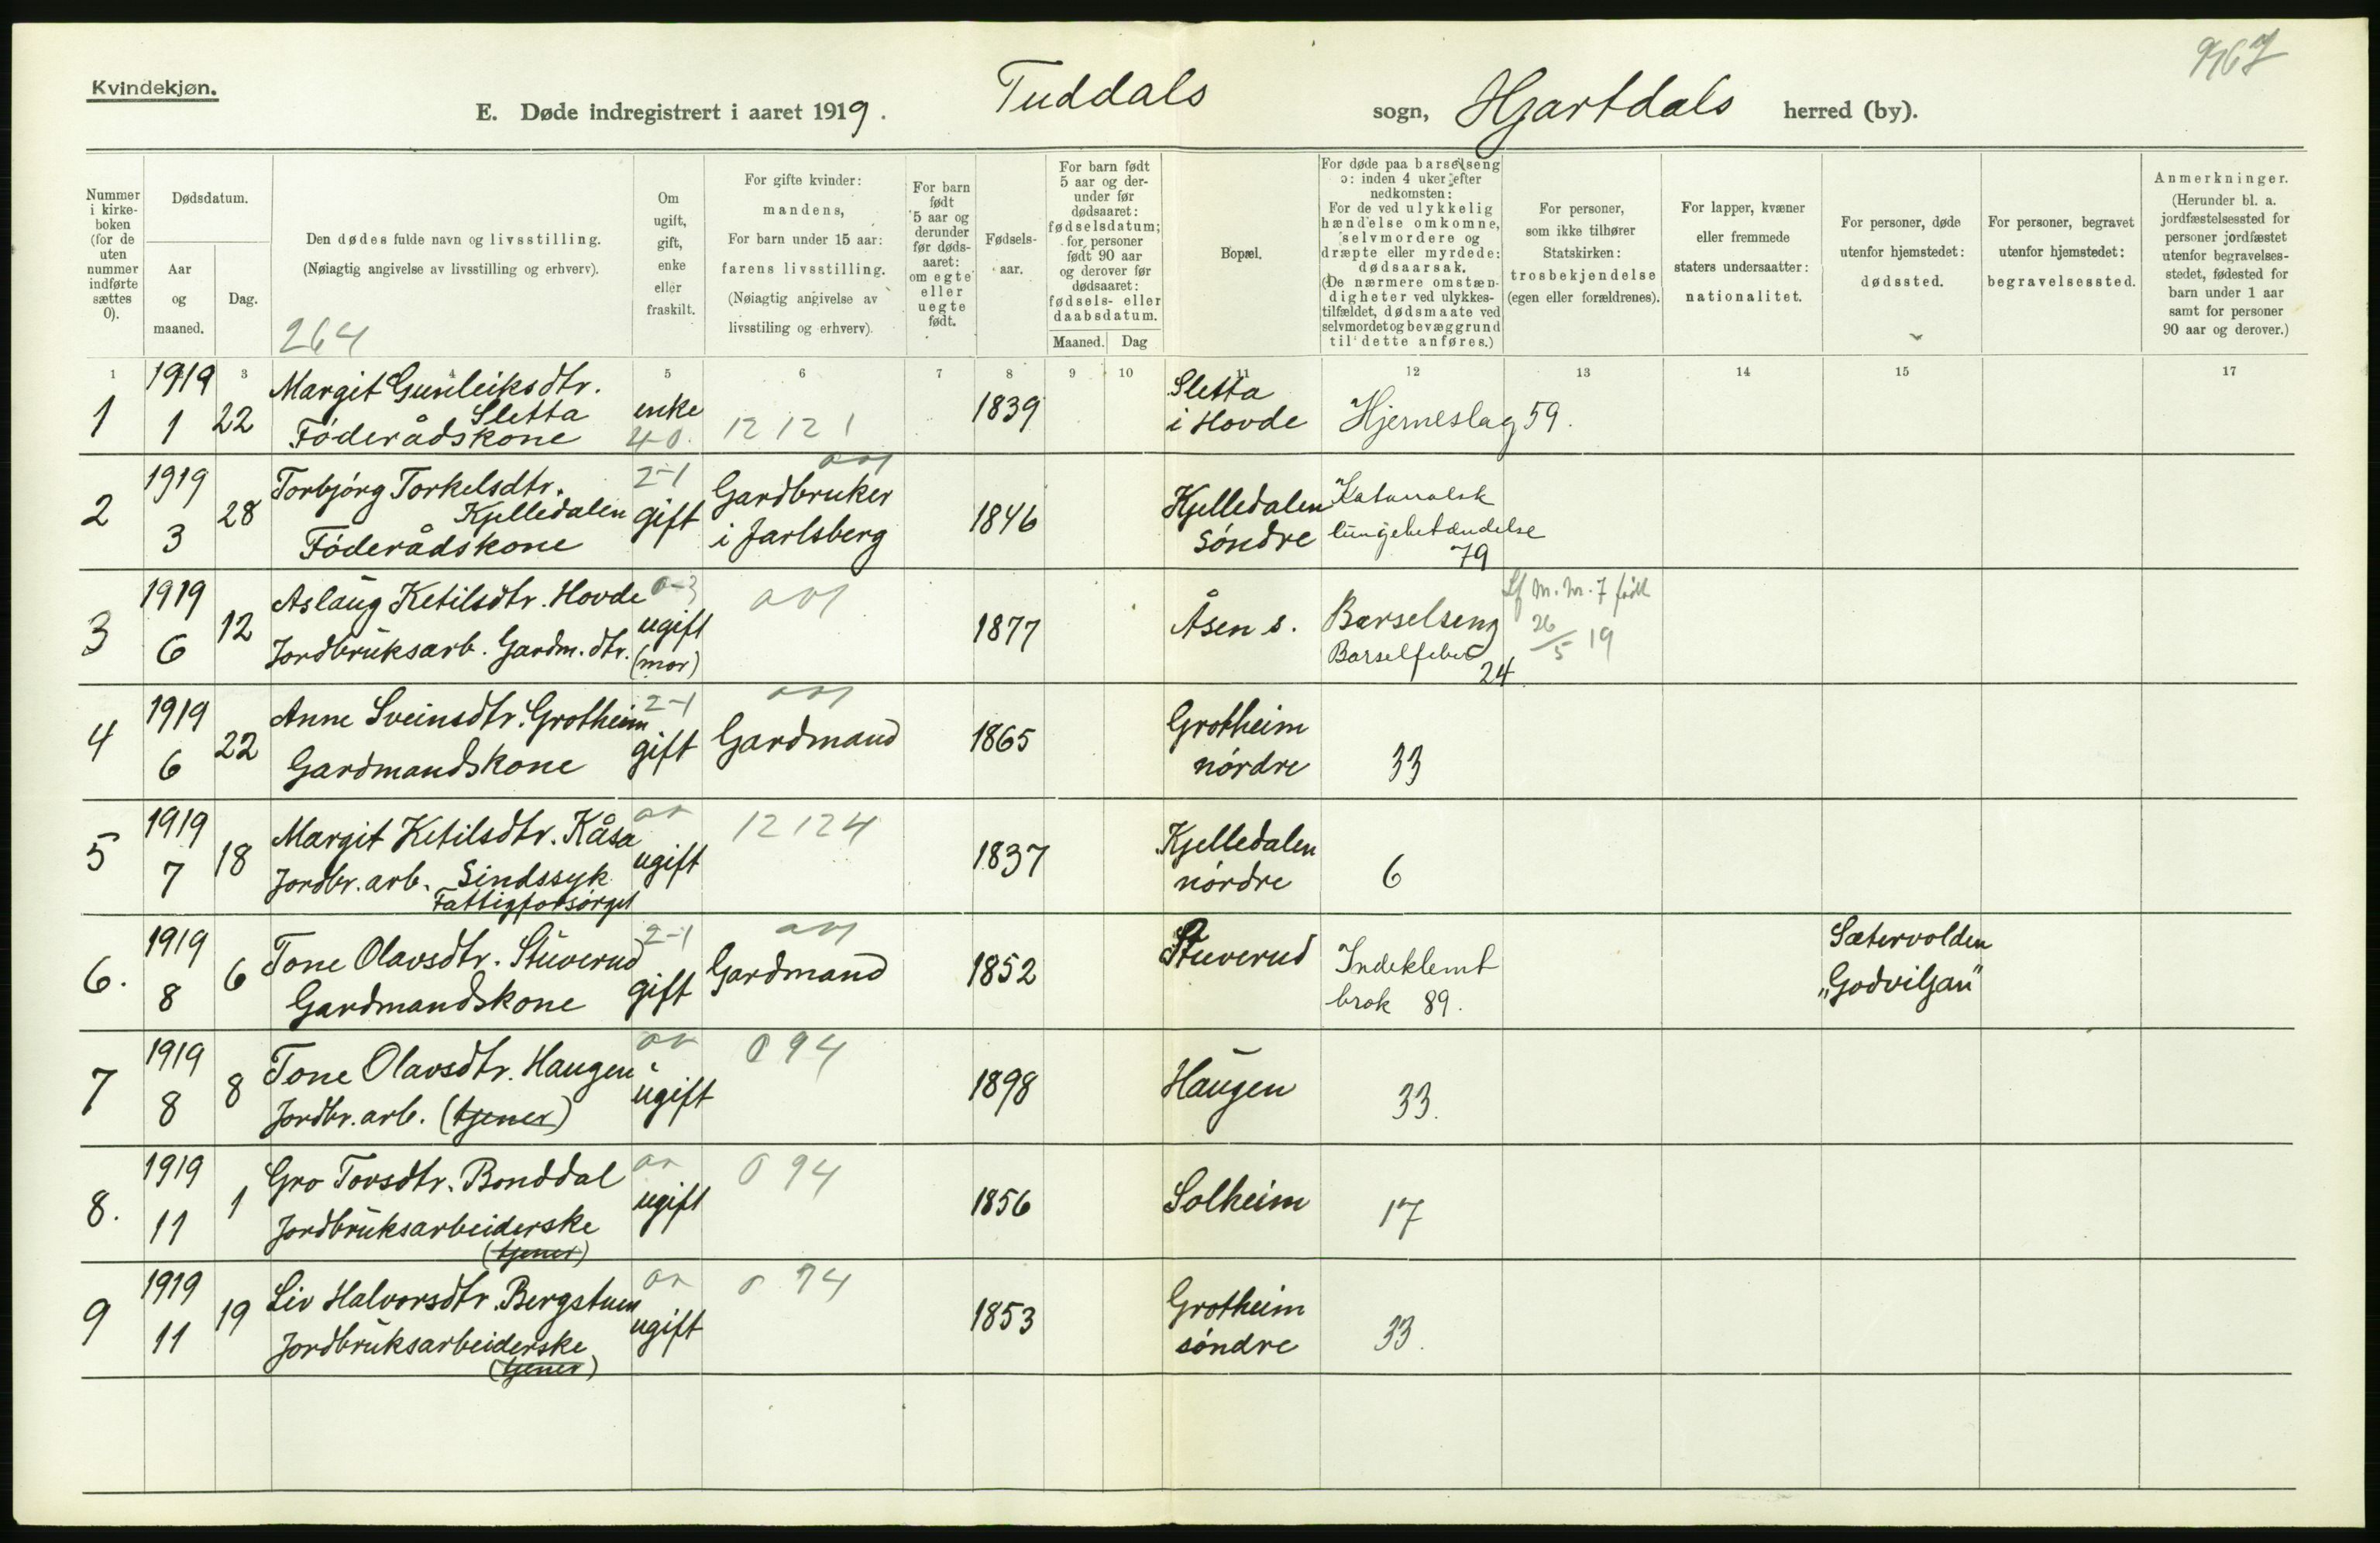 Kvindekjøn.
967
E. Døde indregistrert i aaret 1919. Tuddals sogn, Hjartdals herred (by).
Nummer i kirkeboken (for de uten nummer indførte sættes 0).
Dødsdatum.
Aar og maaned.
Dag.
Den dødes fulde navn og livsstilling.
(Nøiagtig angivelse av livsstilling og erhverv).
264
Om ugift, gift, enke eller fraskilt.
For gifte kvinder: mandens,
For barn under 15 aar: farens livsstilling.
(Nøiagtig angivelse av livsstiling og erhverv).
For barn født 5 aar og derunder før dødsaaret: om egte eller uegte født.
Fødselsaar.
For barn født 5 aar og derunder før dødsaaret: fødselsdatum; for personer født 90 aar og derover før dødsaaret: fødsels- eller daabsdatum.
Maaned. Dag
Bopæl.
For døde paa barselseng ɔ: inden 4 uker efter nedkomsten:
For de ved ulykkelig hændelse omkomne, selvmordere og dræpte eller myrdede: dødsaarsak.
(De nærmere omstændigheter ved ulykkestilfældet, dødsmaate ved selvmordet og bevæggrund til dette anføres.)
For personer, som ikke tilhører Statskirken: trosbekjendelse (egen eller forældrenes).
For lapper, kvæner eller fremmede staters undersaatter: nationalitet.
For personer, døde utenfor hjemstedet: dødssted.
For personer, begravet utenfor hjemstedet: begravelsessted.
Anmerkninger.
(Herunder bl. a. jordfæstelsessted for personer jordfæstet utenfor begravelsesstedet, fødested for barn under 1 aar samt for personer 90 aar og derover.)
1 3 4 5 6 7 8 9 10 11 12 13 14 15 17
1 1919 1 22 Margit Gunleiksdtr. Sletta Föderådskone enke 40. 12 12 1 1839 Sletta i Hovde Hjerneslag 59.
2 1919 3 28 Torbjörg Torkelsdtr. Kjelledalen Föderådskone 2-1 gift Gardbruker i Jarlsberg 1846 Kjelledalen söndre Katarralsk lungebetændelse 79
3 1919 6 12 Aslaug Ketilsdtr. Hovde Jordbruksarb. Gardm. dtr. 0-3 ugift (mor) 1877 Åsen s. Barselseng Barselfeber 24 26/5 19
4 1919 6 22 Anne Sveinsdtr. Grotheim Gardmandskone 2-1 gift Gardmand 1865 Grotheim nördre 33
5 1919 7 18 Margit Ketilsdtr. Kåsa Jordbr. arb. Sindssyk Fattigforsörget ugift 12 124 1837 Kjelledalen nördre 6
6. 1919 8 6 Tone Olavsdtr. Stuverud Gardmandskone 2-1 gift Gardmand 1852 Stuverud Indeklemt brok 89. Sætervolden „Godviljan"
7 1919 8 8 Tone Olavsdtr. Haugen Jordbr. arb. (tjener) ugift 0 94 1898 Haugen 33.
8. 1919 11 1 Gro Torsdtr. Bonddal Jordbruksarbeiderske (tjener) ugift 0 94 1856 Solheim 17
9 1919 11 19 Liv Halvorsdtr. Bergstuen Jordbruksarbeiderske (tjener) ugift 0 94 1853 Grotheim söndre 33.